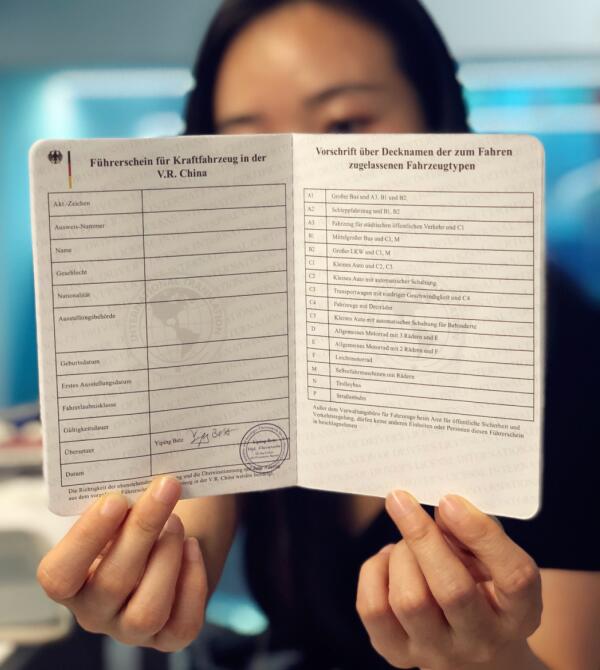 Führerschein für Kraftfahrzeug in der
V.R. China
Akt.-Zeichen
Ausweis-Nummer
Name
Geschlecht
Nationalität
Ausstellungsbehörde
Geburtsdatum
Erstes Ausstellungsdatum
Fahrerlaubnisklasse
Gültigkeitsdauer
Übersetzer
Yiping Betz
Datum
Die Richtigkeit der
aus dem
in der V.R. China werden
Vorschrift über Decknamen der zum Fahren
zugelassenen Fahrzeugtypen
A1 Großer Bus und A3, B1 und B2
A2 Schleppfahrzeug und B1, B2
A3 Fahrzeug für städtischen öffentlichen Verkehr und C1
B1 Mittelgroßer Bus und C1, M
B2 Großer LKW und C1, M
C1 Kleines Auto und C2, C3
C2 Kleines Auto mit automatischer Schaltung
C3 Transportwagen mit niedriger Geschwindigkeit und C4
C4 Fahrzeuge mit Dreiräder
C5 Kleines Auto mit automatischer Schaltung für Behinderte
D Allgemeines Motorrad mit 3 Rädern und E
E Allgemeines Motorrad mit 2 Rädern und F
F Leichtmotorrad
M Selbstfahrmaschinen mit Rädern
N Trolleybus
P Straßenbahn
Außer dem Verwaltungsbüro für Fahrzeuge beim Amt für öffentliche Sicherheit und
Verkehrsregelung, dürfen keine anderen Einheiten oder Personen diesen Führerschein
in beschlagnehmen